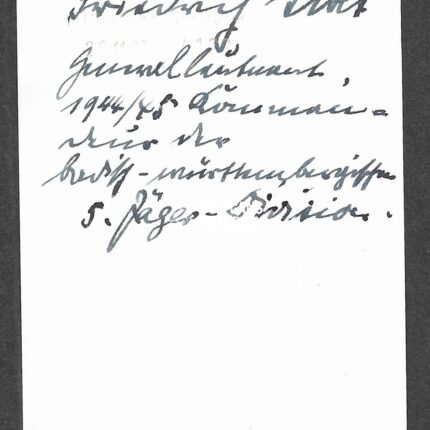 Friedrich Sixt
Generalleutnant,
1944/45 Komman=
deur der
badisch-württembergischen
5. Jäger-Division.